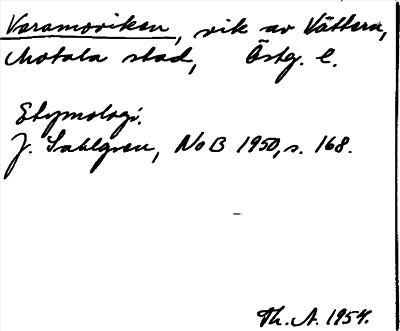 Varamoviken, vik av Vättern,
Motala stad, Östg. l.
Etymologi.
J. Sahlgren, NoB 1950, s. 168.
Th. A. 1954.